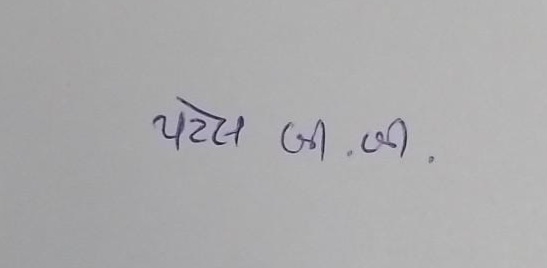 પટેલ જી.જી.